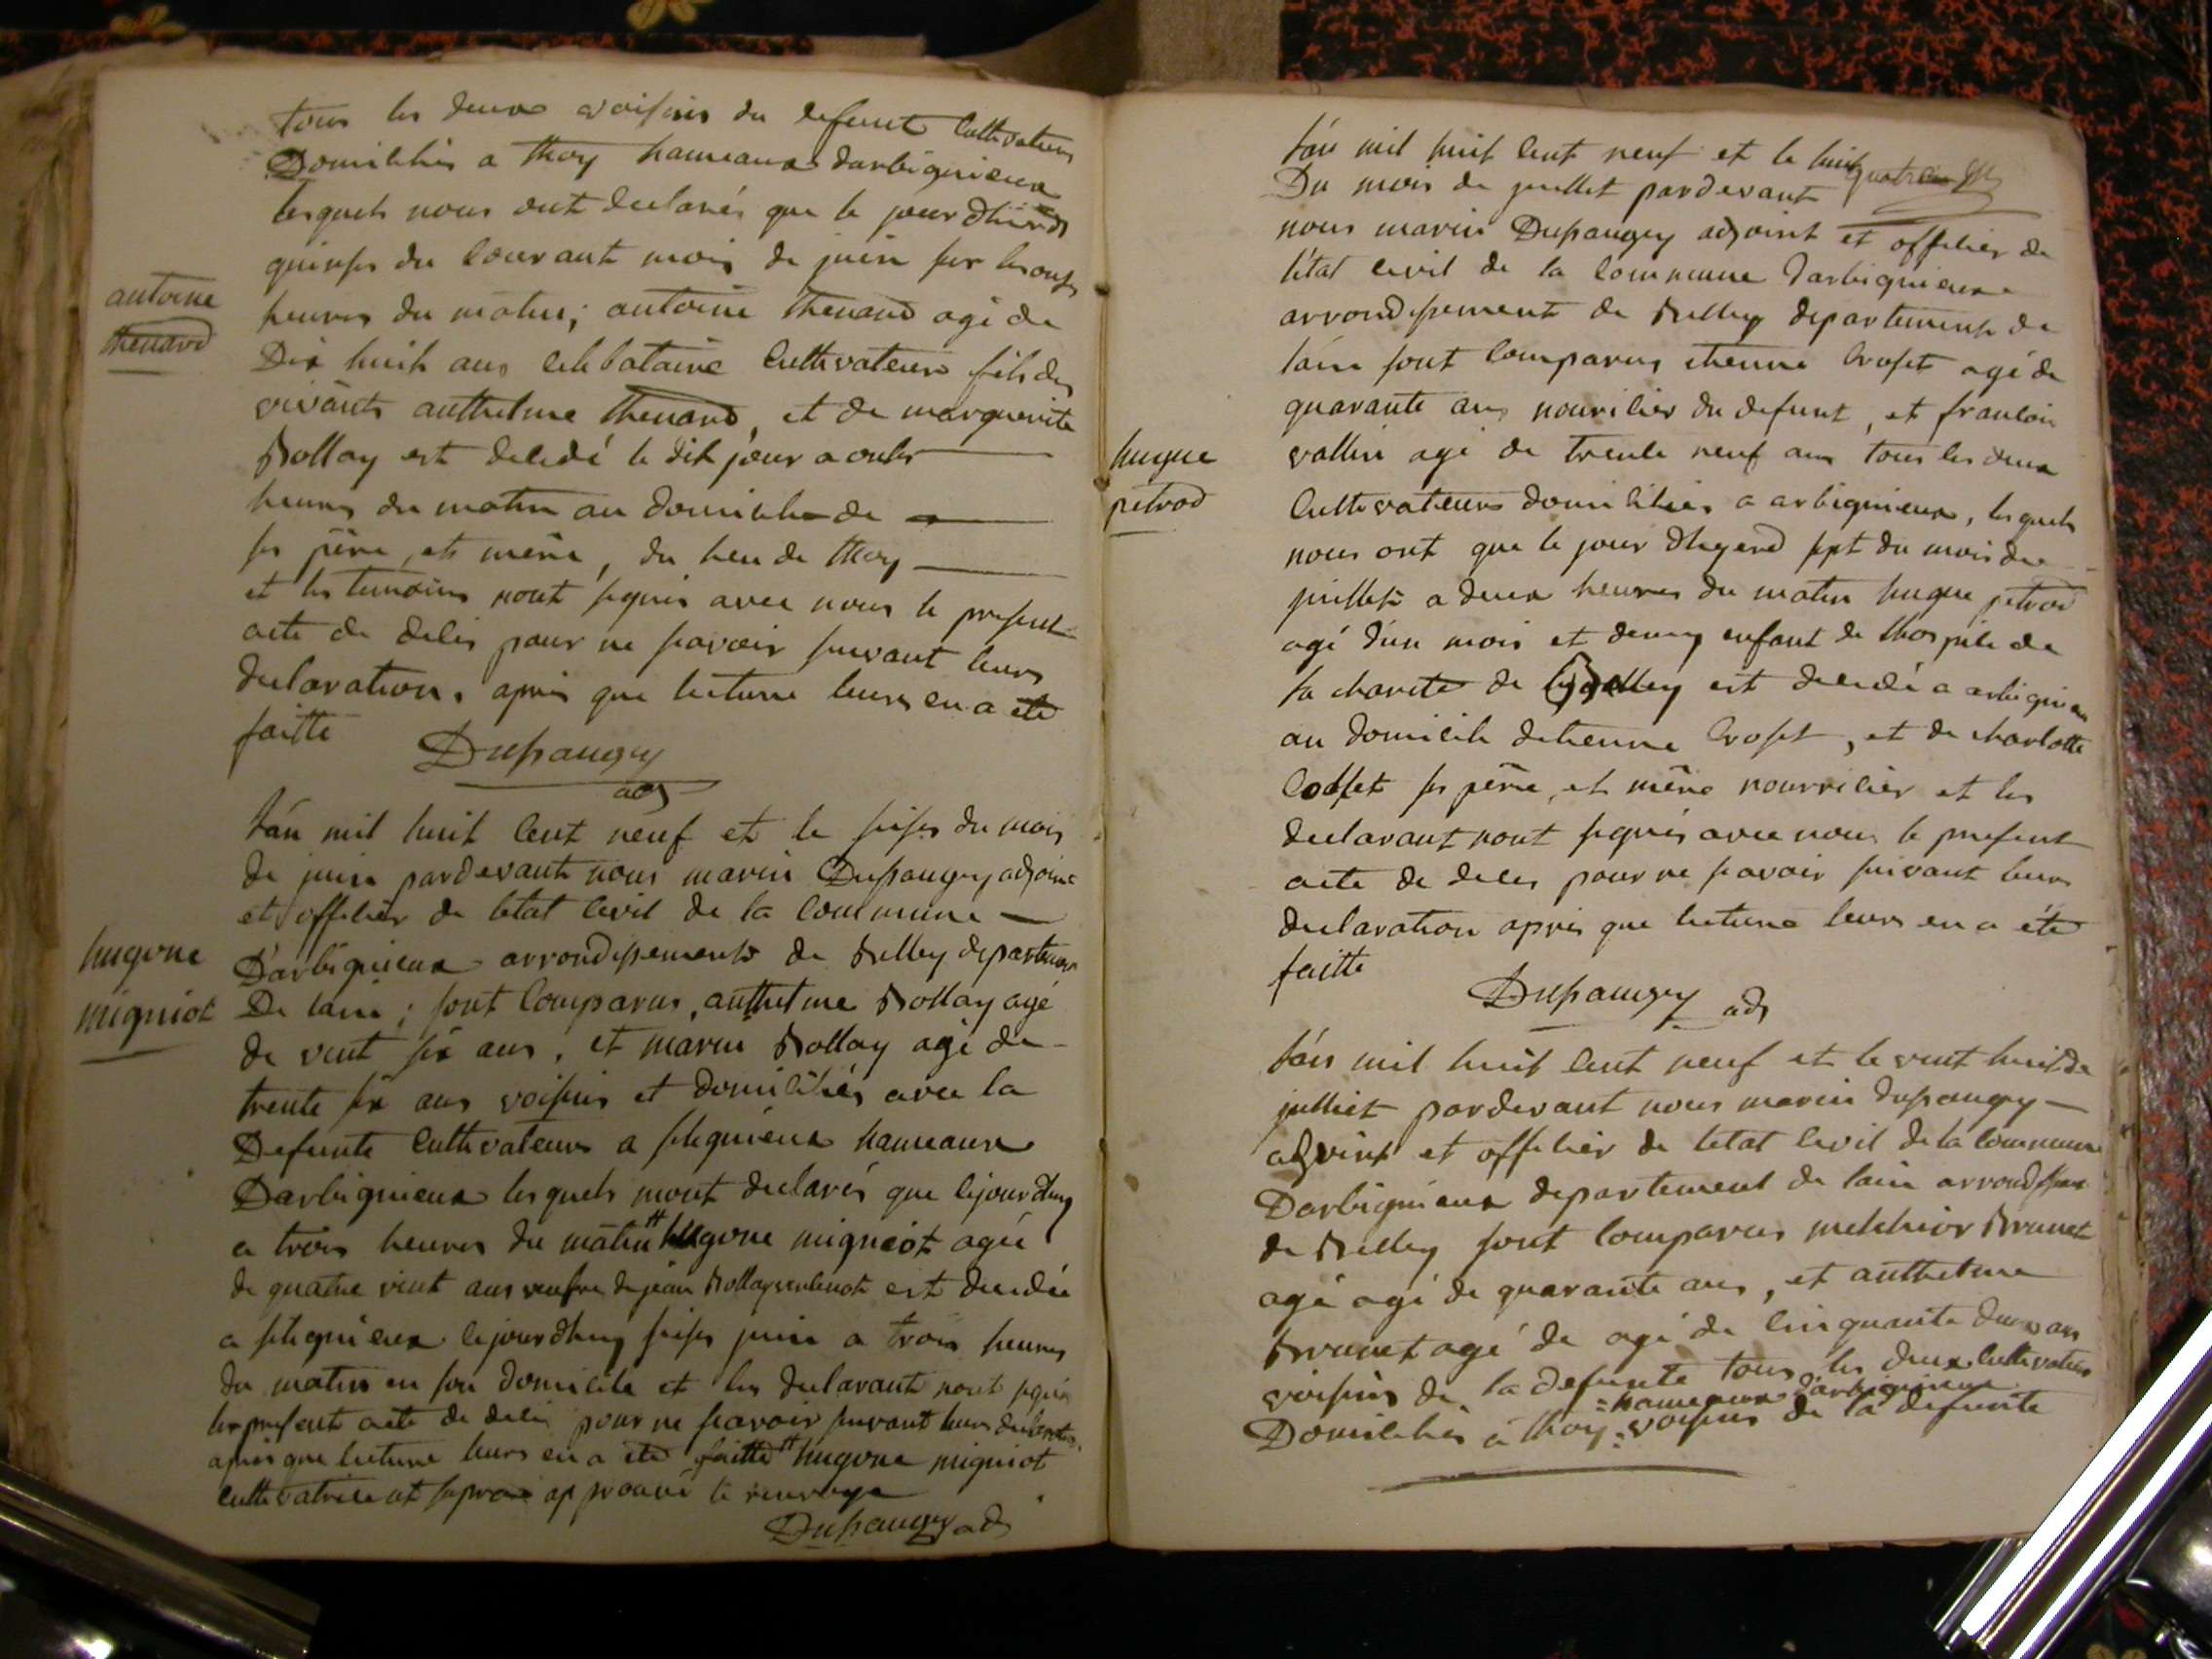 tous les deux voisins du defunt Cultivateurs
Domiciliés a thoy hameaux darbignieux
lesquels nous ont declarés que le jour dhier
quinse du Courant mois de juin sur les onse
antoine
thenard
heures du matin; antoine thenard agé de
Dix huit ans celibataire Cultivateur fils des
vivants anthelme thenard, et de marguerite
Bollay est decedé le dit jour a onse
heures du matin au domicile de
ses père et mère, du lieu de thoy
et les temoins nont signés avec nous le present
acte de deces pour ne savoir suivant leurs
declaration, après que lecture leurs en a eté
faitte
Dupaugey
adj
l'an mil huit Cent neuf et le seise du mois
de juin pardevant nous marin Dupaugey adjoint
et officier de letat Civil de la Commune
hugone
migniot
D'arbignieux arrondissement de Belley departement
De lain; sont Comparus, anthelme Bollay agé
de vint six ans, et marin Bollay agé de
trente six ans voisins et domiciliés avec la
Defunte Cultivateurs a slignieux hameaux
Darbignieux lesquels mont declarés que cejourdhuy
a trois heures du matin # hugone migniot agée
de quatre vint ans veufve de jean Bollay est decedée
a slignieux cejourdhuy seise juin a trois heures
du matin en son domicile et les declarants nont signés
le present acte de deces pour ne savoir suivant leurs declaration
apres que lecture leurs en a eté faitte # hugone migniot
Cultivatrice approuvé le renvoye
Dupaugey adj
l'an mil huit Cent neuf et le huit
Du mois de juillet pardevant
nous marin Dupaugey adjoint et officier de
l'état Civil de la Commune Darbignieux
arrondissement de Belley departement de
lain sont Comparus etienne Croset agé de
quarante ans nouricier du defunt, et francois
hugue
petrod
vallin agé de trente neuf ans tous les deux
Cultivateurs domiciliés a arbignieux, lesquels
nous ont que le jour dhyerd sept du mois de
juillet a deux heures du matin hugue petrod
agé d'un mois et demy enfant de lhospice de
la charite de est decedé a arbignieux
au domicile detienne Croset, et de charlotte
ses père, et mère nourricier et les
declarant nont signés avec nous le present
acte de deces pour ne savoir suivant leurs
declaration après que lecture leurs en a été
faitte
Dupaugey adj
l'an mil huit Cent neuf et le vint huit de
julliet pardevant nous marin dupaugey
adjoint et officier de letat Civil de la Commune
Darbignieux departement de lain arrondissement
de Belley sont Comparus melchior Brunet
agé agé de quarante ans, et anthelme
Brunet agé de agé de Cinquante deux ans
voisins de la defunte tous les deux Cultivateurs
= hameaux d'arbignieux
Domiciliés a thoy = voisins de la defunte